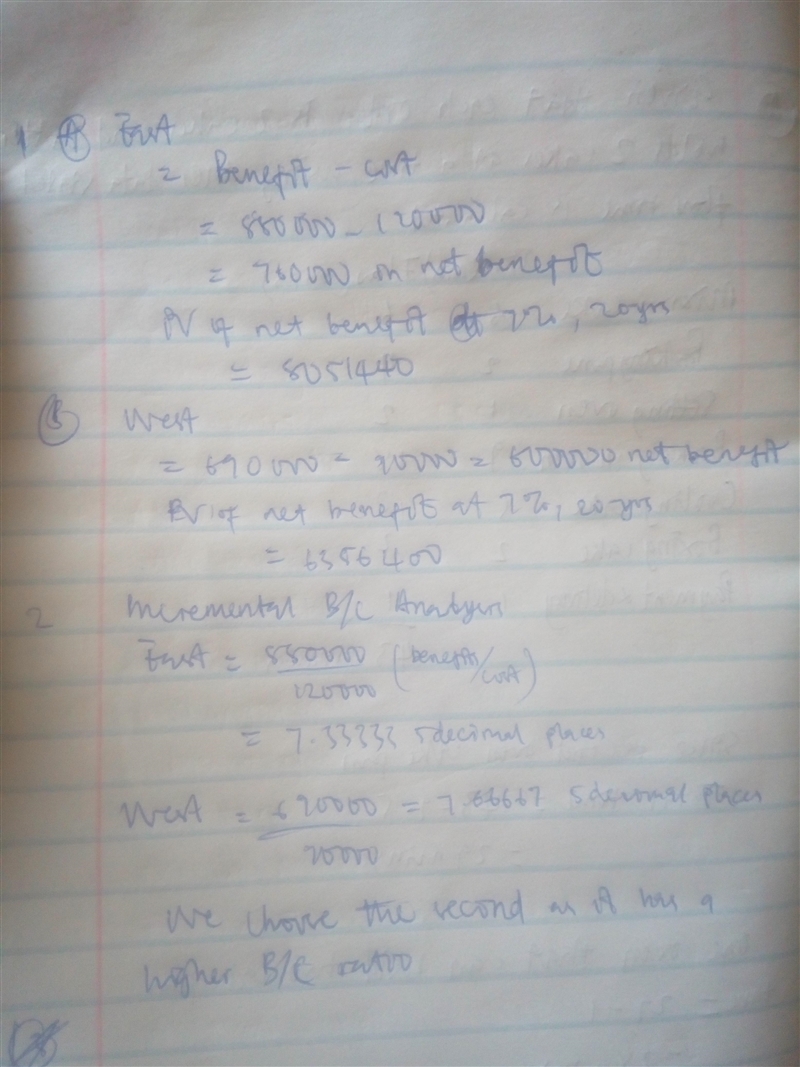 1 A East
= Benefit - cost
= 880000 - 120000
= 760000 in net benefit
PV of net benefit at 7%, 20yrs
= 8051440
B West
= 690000 - 90000 = 600000 net benefit
PV of net benefit at 7%, 20 yrs
= 6356400
2 Incremental B/C Analysis
East = 880000 (benefit/cost)
120000
= 7.33333 5 decimal places
West = 690000 = 7.66667 5 decimal places
90000
We choose the second as it has a
higher B/C ratio